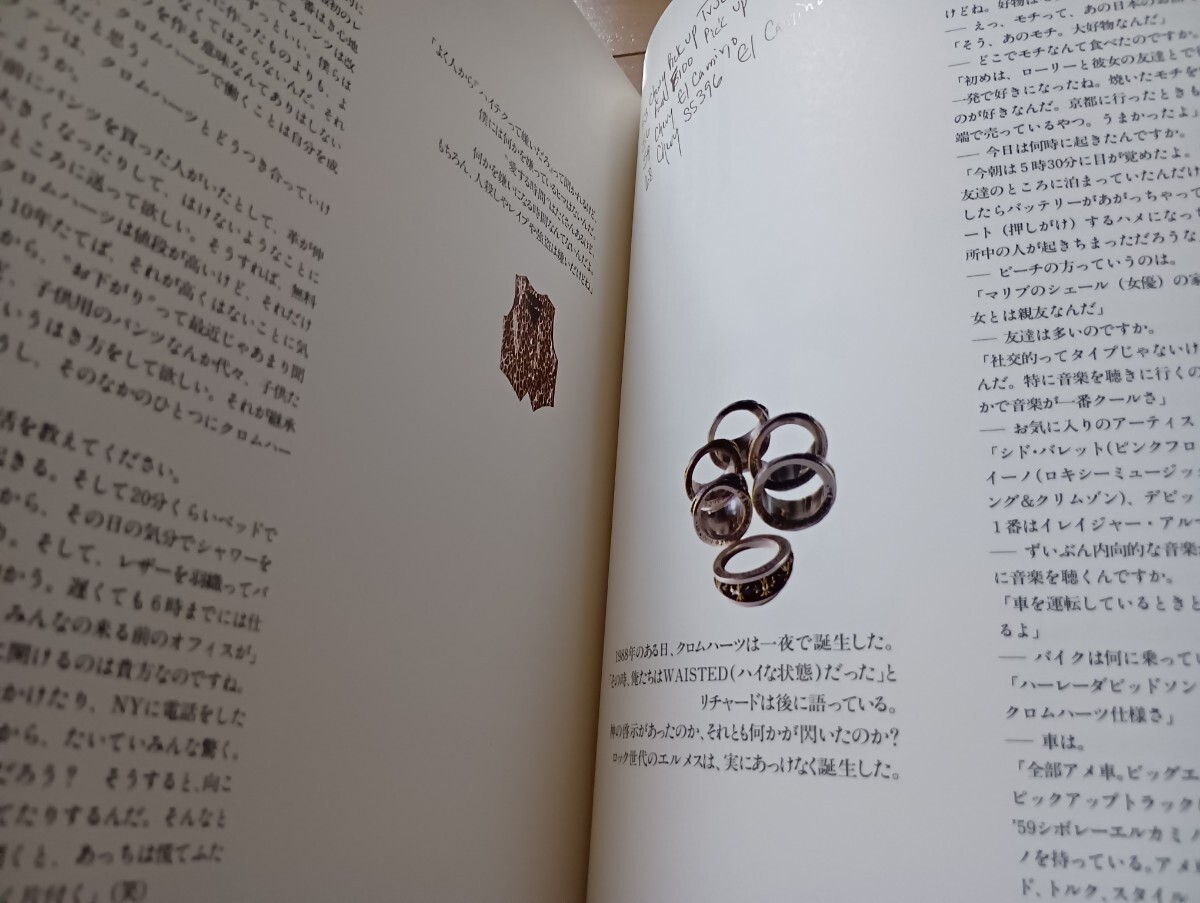 くてはならないんだ。それ
を作る意味なんてありはしない
クロムハーツで働くことは自分を成
だと思う」
クロムハーツとどうつき合っていけ
ょうか。
前にパンツを買った人がいたとして、革が伸
大きくなったりして、はけないようなことに
のところに送って欲しい。そうすれば、無料
クロムハーツは値段が高いけど、それだけ
10年たてば、それが高くはないことに気
から、“お下がり”って最近じゃあまり聞
ど、子供用のパンツなんか代々、子供た
いうはき方をして欲しい。それが継承
うし、そのなかのひとつにクロムハー
活を教えてください。
起きる。そして20分くらいベッドで
から、その日の気分でシャワーを
り。そして、レザーを羽織ってバ
向かう。遅くても6時までには仕
みんなの来る前のオフィスが」
に開けるのは貴方なのですね。
かけたり、NYに電話をした
から、たいていみんな驚く。
だろう? そうすると、向こ
てたりするんだ。そんなと
くと、あっちは慌てふた
片付く」(笑)
「よく人から“ハイテクって嫌いだろ”って聞かれるけど、
僕には何かを嫌っているひまはないんだ。
“愛する時間”はたくさんあるけど、
何かを嫌いになる時間なんてないんだよ。
もちろん、人殺しやレイプや強盗は嫌いだけどね」
Pick up
Pick up
El Camino
Chevy El Camino
Chevy SS396
1988年のある日、クロムハーツは一夜で誕生した。
「その時、俺たちはWAISTED(ハイな状態)だった」と
リチャードは後に語っている。
神の啓示があったのか、それとも何かが閃いたのか?
ロック世代のエルメスは、実にあっけなく誕生した。
けどね。好物は
── えっ、モチって、あの日本の
「そう、あのモチ。大好物なんだ」
── どこでモチなんて食べたのですか。
「初めは、ローリーと彼女の友達とで
一発で好きになったね。焼いたモチを
のが好きなんだ。京都に行ったときも
端で売っているやつ。うまかったよ」
── 今日は何時に起きたんですか。
「今朝は5時30分に目が覚めたよ。
友達のところに泊まっていたんだけ
したらバッテリーがあがっちゃって
ート(押しがけ)するハメになっ
所中の人が起きちまっただろうな
── ビーチの方っていうのは。
「マリブのシェール(女優)の家
女とは親友なんだ」
── 友達は多いのですか。
「社交的ってタイプじゃないけ
んだ。特に音楽を聴きに行くの
かで音楽が一番クールさ」
── お気に入りのアーティス
「シド・バレット(ピンクフロ
イーノ(ロキシーミュージッ
ング&クリムゾン)、デビッ
1番はイレイジャー・アル
── ずいぶん内向的な音楽
に音楽を聴くんですか。
「車を運転しているときと
るよ」
── バイクは何に乗ってい
「ハーレーダビッドソン
クロムハーツ仕様さ」
── 車は。
「全部アメ車。ビッグエ
ピックアップトラック
'59シボレーエルカミノ
ノを持っている。アメ
ド、トルク、スタイル